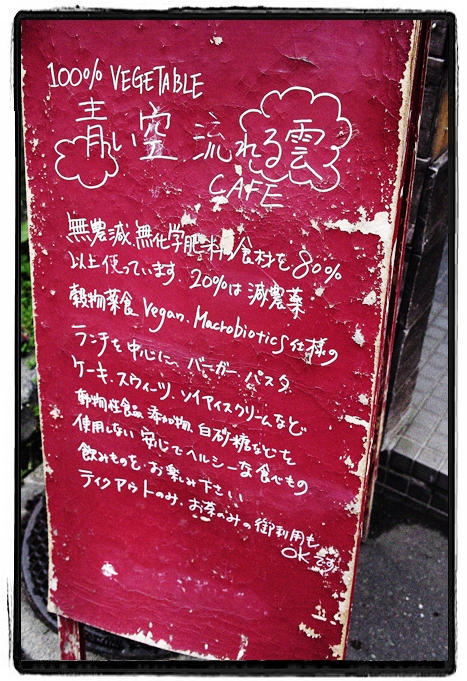 100% VEGETABLE
青い空 流れる雲
CAFE
無農減、無化学肥料の食材を80%
以上使っています。20%は減農薬
穀物菜食 Vegan、Macrobiotics仕様の
ランチを中心に、バーガー パスタ
ケーキ、スウィーツ、ソイアイスクリームなど
動物性食品 添加物、白砂糖などを
使用しない 安心でヘルシーな食べもの
飲みものを お楽み下さい
テイクアウトのみ、お茶のみの御利用も
OKです